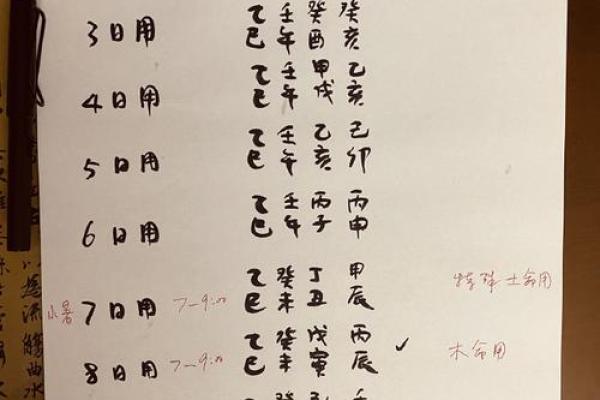 乙 壬 癸 癸
3日用 巳 午 酉 亥
乙 壬 甲 乙
4日用 巳 午 戌 亥
乙 壬 乙 己
5日用 巳 午 亥 卯
乙 壬 丙 丙
6日用 巳 午 子 申
乙 癸 丁 甲 特殊土命用
小暑 7日用 7-9:00 巳 未 丑 辰
乙 癸 戊 丙 ✓ 木命用
8日用 7-9:00 巳 未 寅 辰
乙 癸
流觴曲水